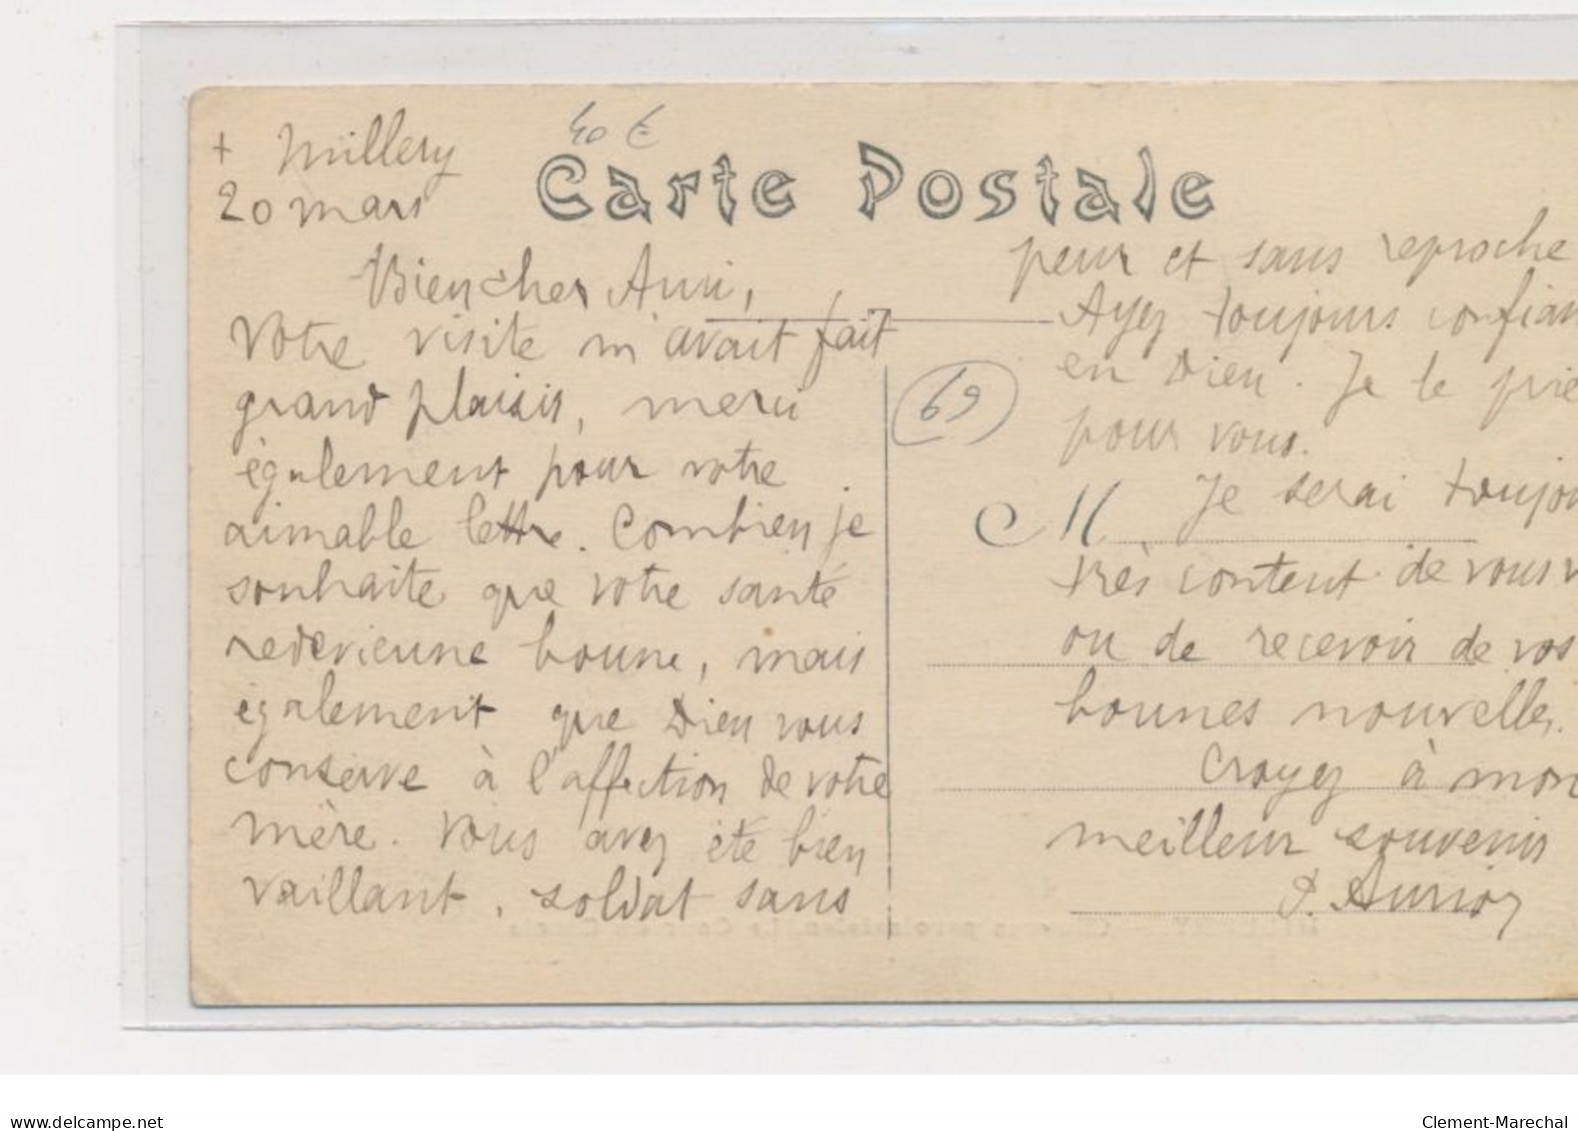 + Millery
20 mars
40 €
Carte Postale
Bien cher Ami,
Votre visite m'avait fait
grand plaisir, merci
également pour votre
aimable lettre. Combien je
souhaite que votre santé
redevienne bonne, mais
également que Dieu vous
conserve à l'affection de votre
mère. Vous avez été bien
vaillant, soldat sans
peur et sans reproche
Ayez toujours confian
en Dieu. Je le prie
pour vous.
Je serai toujou
très content de vous v
ou de recevoir de vos
bonnes nouvelles.
Croyez à mon
meilleur souvenir
69
M
delcampe.net
Clement-Marechal